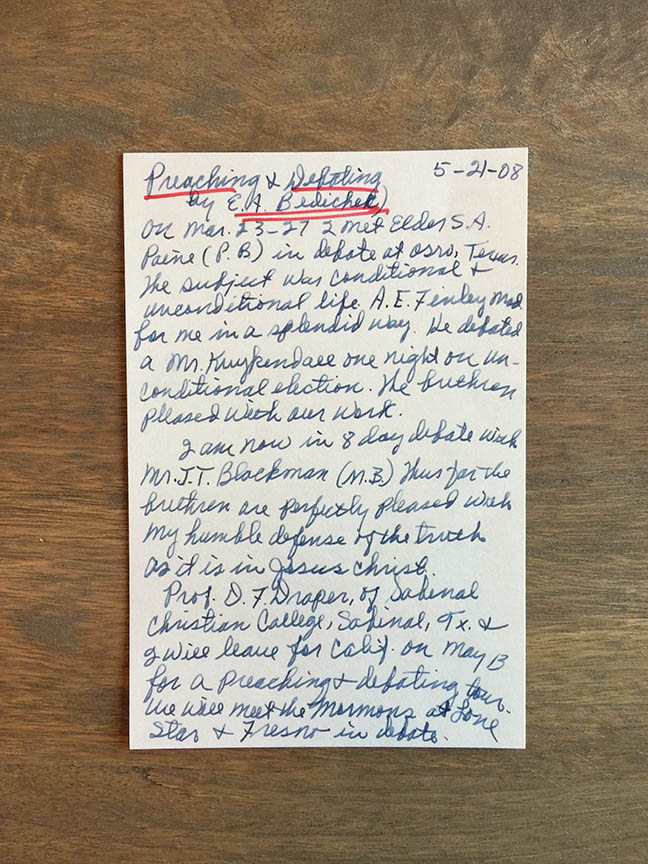 Preaching & Debating 5-21-08
by E.A. Bedichek)
on Mar. 23-27 I met Elder S.A.
Paine (P.B) in debate at Osro, Texas.
The subject was conditional &
unconditional life. A.E. Finley mod.
for me in a splendid way. He debated
a Mr. Kuykendall one night on un-
conditional election. The brethren
pleased with our work.
I am now in 8 day debate with
Mr. J.T. Blackman (M.B.) Thus far the
brethren are perfectly pleased with
my humble defense of the truth
as it is in Jesus Christ.
Prof. D.F. Draper, of Sabinal
Christian College, Sabinal, Tx. &
I will leave for Calif. on May 13
for a preaching & debating tour.
We will meet the Mormons at Lone
Star & Fresno in debate.